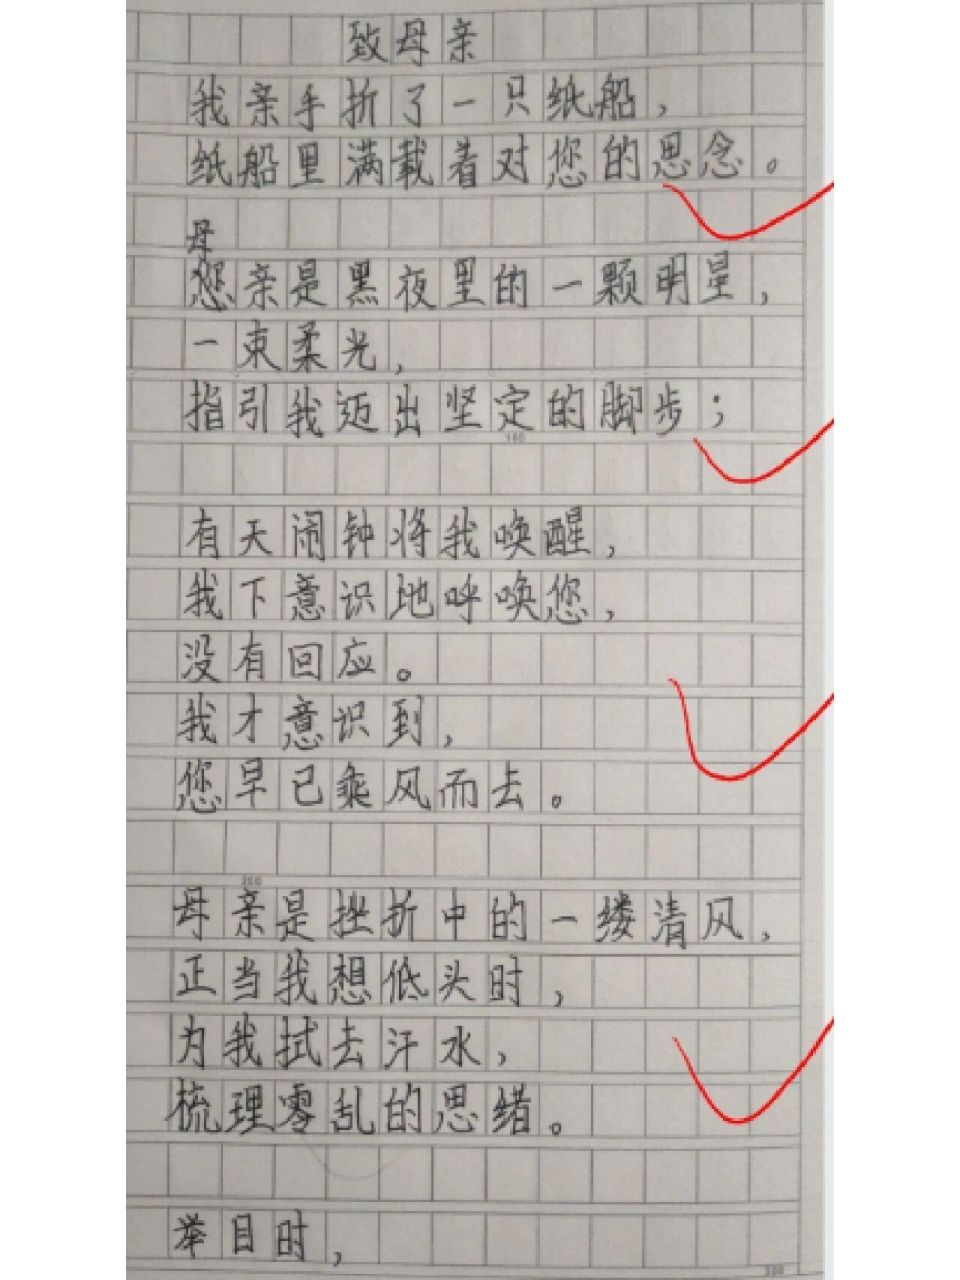 致母亲
我亲手折了一只纸船，
纸船里满载着对您的思念。
母
您亲是黑夜里的一颗明星，
一束柔光，
指引我迈出坚定的脚步；
100
有天闹钟将我唤醒，
我下意识地呼唤您，
没有回应。
我才意识到，
您早已乘风而去。
200
母亲是挫折中的一缕清风，
正当我想低头时，
为我拭去汗水，
梳理零乱的思绪。
举目时，
300